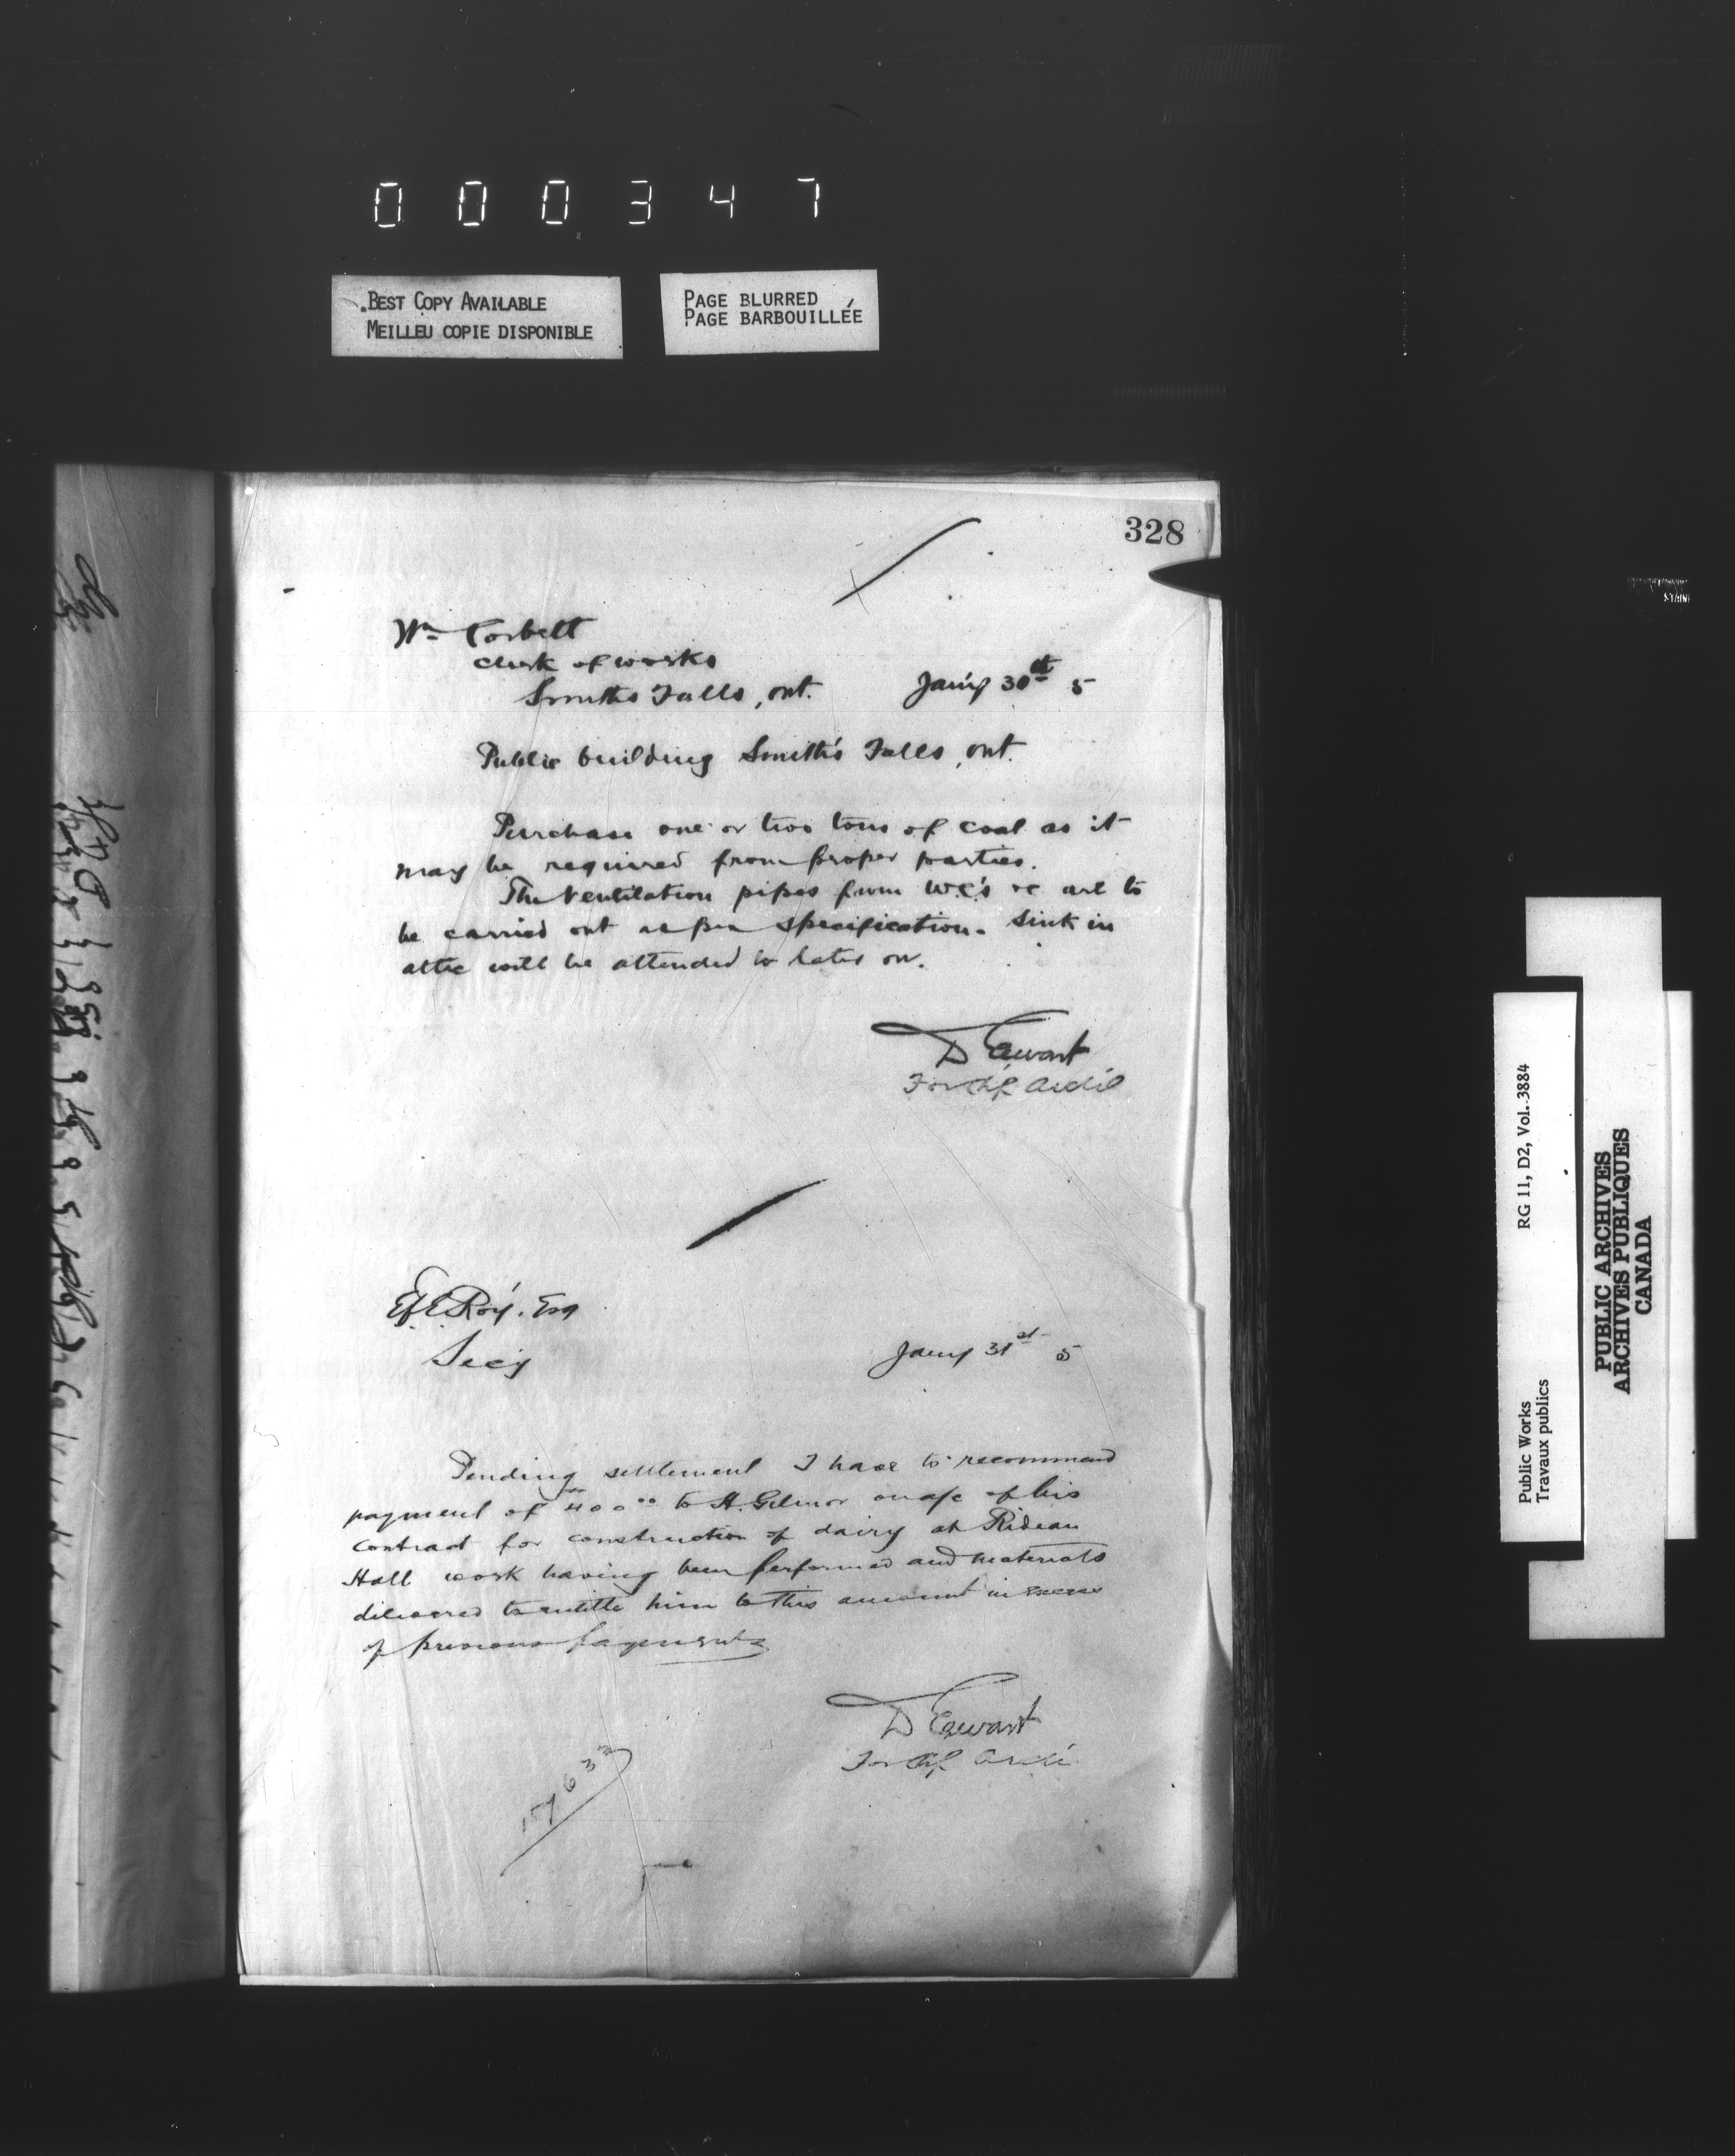 000347
BEST COPY AVAILABLE
MEILLEU COPIE DISPONIBLE
PAGE BLURRED
PAGE BARBOUILLÉE
328
Wm Corbett
Clerk of works
Smiths Falls, ont.
Jan'y 30th 5
Public building Smith's Falls, ont.
Purchase one or two tons of coal as it
may be required from proper parties.
The Ventilation pipes from W.C's &c are to
be carried out as per specification. Sink in
attic will be attended to later on.
D Ewart
For Chf. Archt
E.F.E. Roy. Esq
Secy
Jany 31st 5
Pending settlement I have to recommend
payment of $400.00 to H. Gilmor on a/c of his
contract for construction of dairy at Rideau
Hall work having been performed and materials
delivered to entitle him to this amount in excess
of previous payments
D Ewart
For Chf Archt
RG 11, D2, Vol. 3884
Public Works
Travaux publics
PUBLIC ARCHIVES
ARCHIVES PUBLIQUES
CANADA